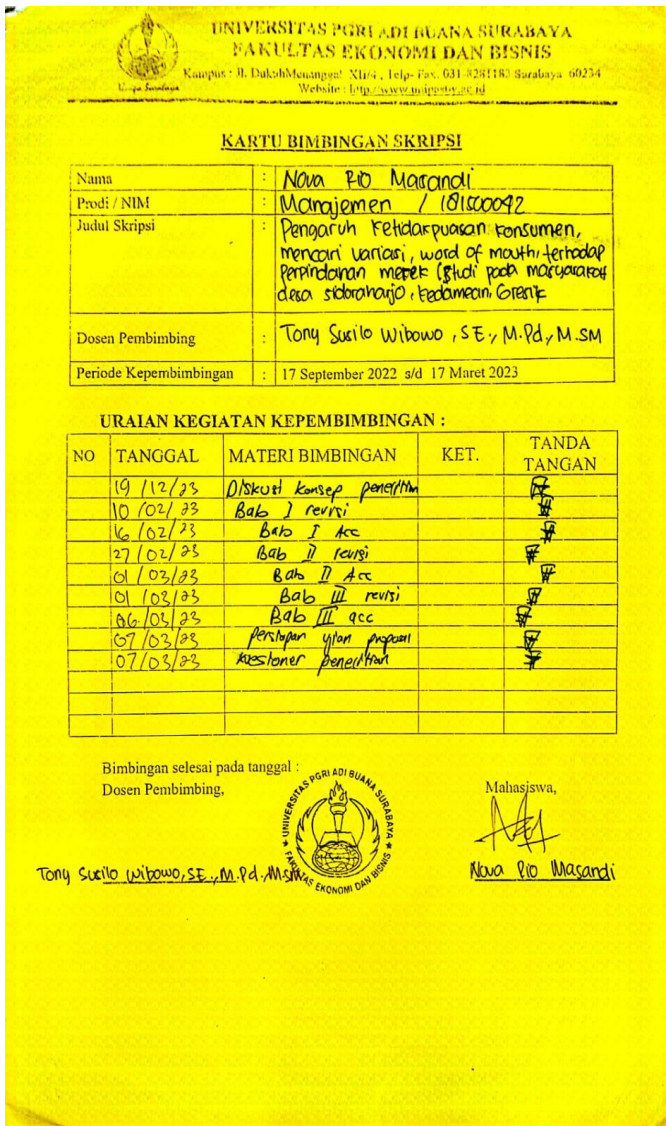 UNIVERSITAS PGRI ADI BUANA SURABAYA
FAKULTAS EKONOMI DAN BISNIS
Kampus : Jl. DukuhMenanggal XII/4 , Telp- Fax. 031-8281183 Surabaya 60234
Website : http://www.unipasby.ac.id
KARTU BIMBINGAN SKRIPSI
Nama : Nova Rio Masandi
Prodi / NIM : Manajemen / 181500092
Judul Skripsi : Pengaruh Ketidakpuasan konsumen,
mencari variasi, word of mouth, terhadap
Perpindahan merek (Studi pada masyarakat
desa sidoraharjo, kedamean, Gresik
Dosen Pembimbing : Tony Susilo Wibowo , SE., M.Pd., M.SM
Periode Kepembimbingan : 17 September 2022 s/d 17 Maret 2023
URAIAN KEGIATAN KEPEMBIMBINGAN :
NO TANGGAL MATERI BIMBINGAN KET. TANDA TANGAN
19 /12/23 Diskusi Konsep penelitian
10 /02/ 23 Bab I revisi
16 /02/ 23 Bab I Acc
27 / 02/ 23 Bab II revisi
01 / 03/23 Bab II Acc
01 / 03/ 23 Bab III revisi
06/03/23 Bab III acc
07 / 03/23 Persiapan ujian proposal
07 / 03/ 23 kuesioner penelitian
Bimbingan selesai pada tanggal :
Dosen Pembimbing,
Mahasiswa,
UNIVERSITAS PGRI ADI BUANA SURABAYA
FAKULTAS EKONOMI DAN BISNIS
Tony Susilo Wibowo, SE., M.Pd., M.SM
Nova Rio Masandi